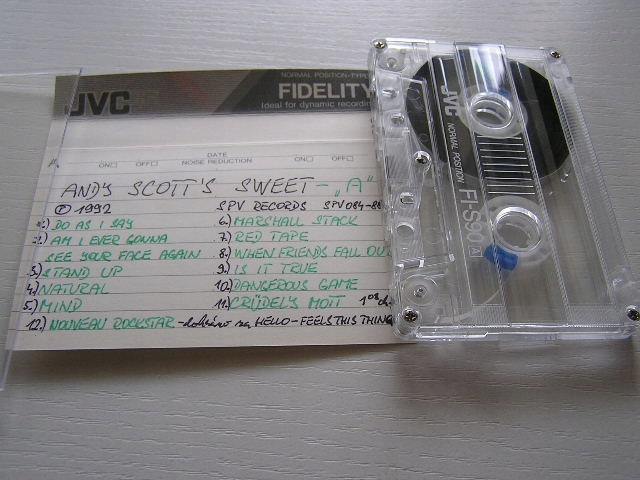 NORMAL POSITION-TYPE
JVC FIDELITY
Ideal for dynamic recordin
DATE
ON OFF NOISE REDUCTION ON OFF
ANDY SCOTT'S SWEET - „A"
℗ 1992 SPV RECORDS SPV 084-88
1.) DO AS I SAY
2.) AM I EVER GONNA
SEE YOUR FACE AGAIN
3.) STAND UP
4.) NATURAL
5.) MIND
6.) MARSHALL STACK
7.) RED TAPE
8.) WHEN FRIENDS FALL OUT
9.) IS IT TRUE
10.) DANGEROUS GAME
11.) CRÜDEL'S MOIT
12.) NOUVEAU ROCKSTAR - dohráno na HELLO - FEELS THIS THING
JVC NORMAL POSITION FI-S90 A